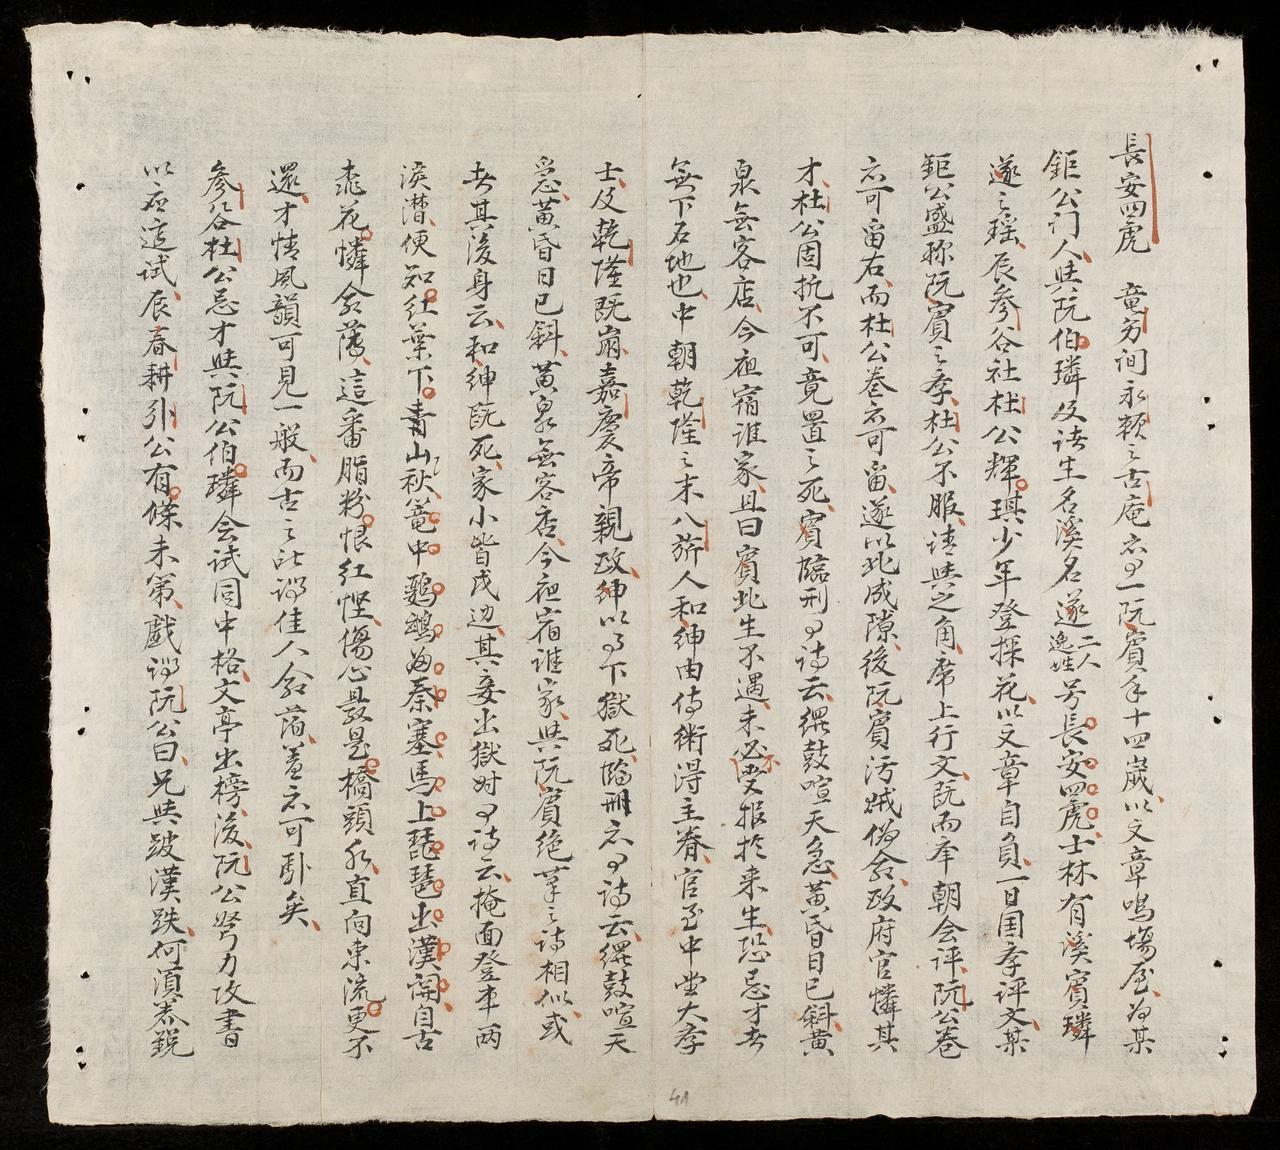 長安四虎　章穷间永赖之古庵亦𠃣一阮賓年十四歲以文章鳴塲屋为某
鉅公门人与阮伯璘及诸生名溪名遂二人逸姓号長安四虎士林有溪賓璘
遂之瑶辰参谷社杜公輝琪少年登探花以文章自負一日囯孝评文某
鉅公盛称阮賓之孝杜公不服请与之角席上行文既而奉朝会评阮公卷
亦可畄右而杜公卷亦可畄遂以此成隙後阮賓污贼伪命政府官憐其
才杜公固抗不可竟置之死賓臨刑𠃣诗云鑼鼓喧天急黄昏日已斜黄
泉無客店今夜宿谁家且曰賓此生不遇未必不受报於来生恐忌才者
無下石地也中朝乾隆之末八旂人和紳由侍術淂主眷官至中堂大孝
士及乾隆既崩嘉慶帝親政紳以𠃣下獄死臨刑亦𠃣诗云鑼鼓喧天
急黄昏日已斜黄泉無客店今夜宿谁家与阮賓绝筆之诗相似或
者其後身云和紳既死家小皆戍边其妾出獄时𠃣诗云掩面登車两
淚潜便知红葉下青山秋篭中鸚鵡为秦塞馬上琵琶出漢関自古
桃花憐命薄這番脂粉恨红慳傷心最是橋頭水直向東流更不
還才情風韻可見一般而古之所谓佳人命薄盖亦可卧矣
参谷杜公忌才与阮公伯璘会试同中格文亭出榜後阮公努力攻書
以应這试辰春耕引公有條未第戱谓阮公曰兄与跛漢跌何湏养鋭